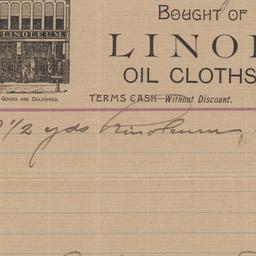 BOUGHT OF
LINOLEUM
LINO
OIL CLOTHS
GOODS ARE DELIVERED.
TERMS CASH—Without Discount.
1/2 yds Linoleum